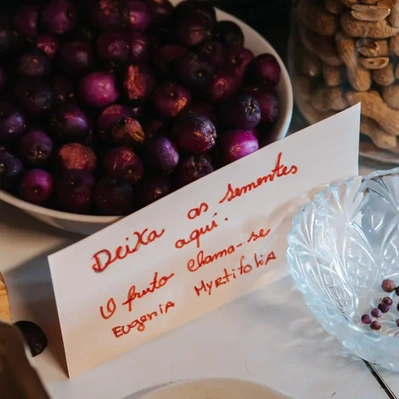 Deixa os sementes
aqui.
O fruto chama-se
Eugenia Myrtifolia